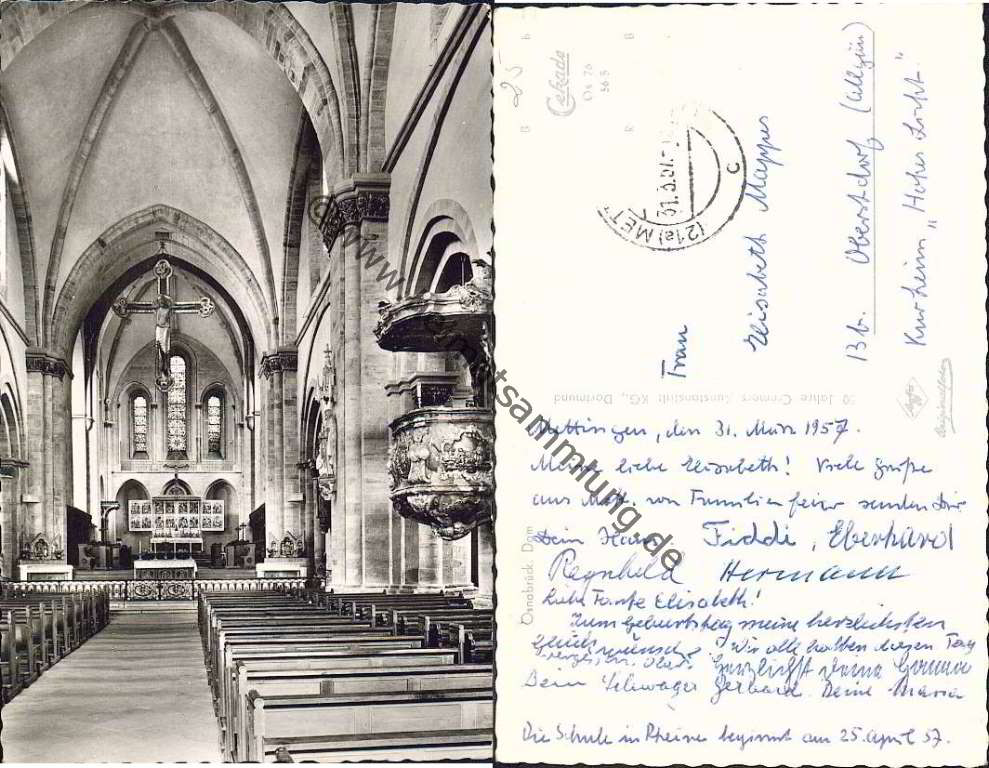 © www.heimatsammlung.de
25
Cekade
Os 76
56 B
(21a) MET
31.3.57.
c
Frau
Elisabeth Mappes
13b. Oberstdorf (Allgäu)
Kurheim „Hohes Licht"
50 Jahre Cramers Kunstanstalt KG., Dortmund
Agfa
Originalfoto
Osnabrück, Dom
Mettingen, den 31. März 1957.
Meine liebe Elisabeth! Viele Grüße
aus Mett. von Familienfeier senden Dir
Dein Hans Fiddi, Eberhard
Ragnhild Hermann
Liebe Tante Elisabeth!
Zum Geburtstag meine herzlichsten
Glückwünsche. Wir alle hatten diesen Tag
Herzlichst Deine
Dein Schwager Gerhard. Deine Maria
Die Schule in Rheine beginnt am 25. April 57.